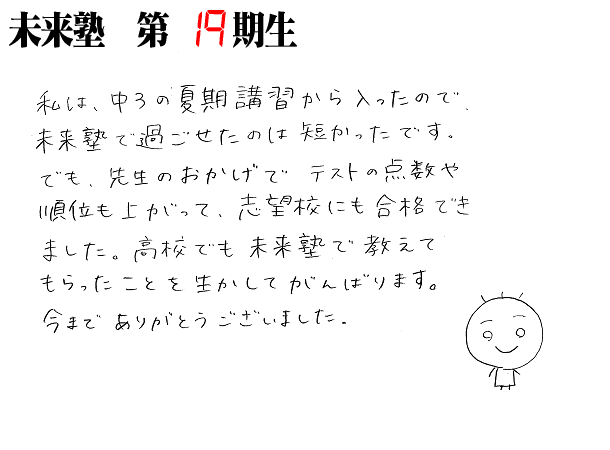 未来塾 第 19 期生
私は、中3の夏期講習から入ったので、
未来塾で過ごせたのは短かったです。
でも、先生のおかげで テストの点数や
順位も上がって、志望校にも合格でき
ました。高校でも未来塾で教えて
もらったことを生かしてがんばります。
今までありがとうございました。